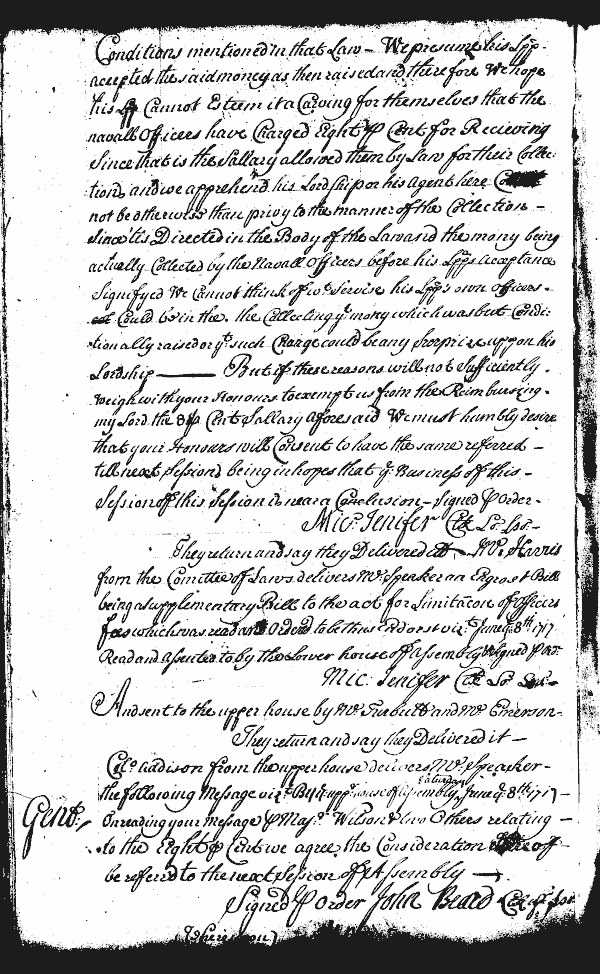 Conditions mentioned in that Law – We presume his Lpp.
accepted the said money as then raised and therefore We hope
his Lpp Cannot Esteem it a Carving for themselves that the
navall Officers have Charged Eight P Cent for Recieving
Since that is the Sallary allowed them by Law for their Collec-
tion, and we apprehend his Lordship or his Agent here
not be otherwise than privy to the manner of the Collection –
Since 'tis Directed in the Body of the Law and the mony being
actually Collected by the Navall Officers before his Lpps Acceptance
Signifyed We Cannot think of wt. Servise his Lpp's own officers.
Could be in the. the Collecting ye. mony which was but Condi:
tionally raised or yt. such Charge could be any Surprise uppon his
Lordship —— But if these reasons will not Sufficiently.
weigh with your Honours to exempt us from the Reimbursing.
my Lord the 8 P Cent Sallary Aforesaid We must humbly desire
that your Honours will Consent to have the same referred –
till next Session, being in hopes that ye. Business of this –
Session of this Session is near a Conclusion – Signed P Order.
Mic. Jenifer Clk Lo. Hos.–
They return and say they Delivered it – Mr. Harris
from the Comittee of Laws delivers Mr. Speaker an Engrost Bill
being a supplementary Bill to the act for Limitacon of Officers
fees which was read and Orderd to be thus Endorst vizt. June ye. 8th. 1717
Read and Assented to by the Lower house of Assembly Signed P Or.
Mic: Jenifer Clk Lo.
And sent to the upper house by Mr. Turbutt and Mr. Emerson –
They return and say they Delivered it –
Colo. Addison from the upper house delivers Mr. Speaker –
the following Message vizt. By the upp. house of Assembly, Saturday June ye. 8th. 1717 –
Gent. On reading your Message P Majr. Wilson & two Others relating –
to the Eight P Cent we agree the Consideration thereof –
be referred to the next Session of Assembly –
Signed P Order John Beard
(Whereupon)